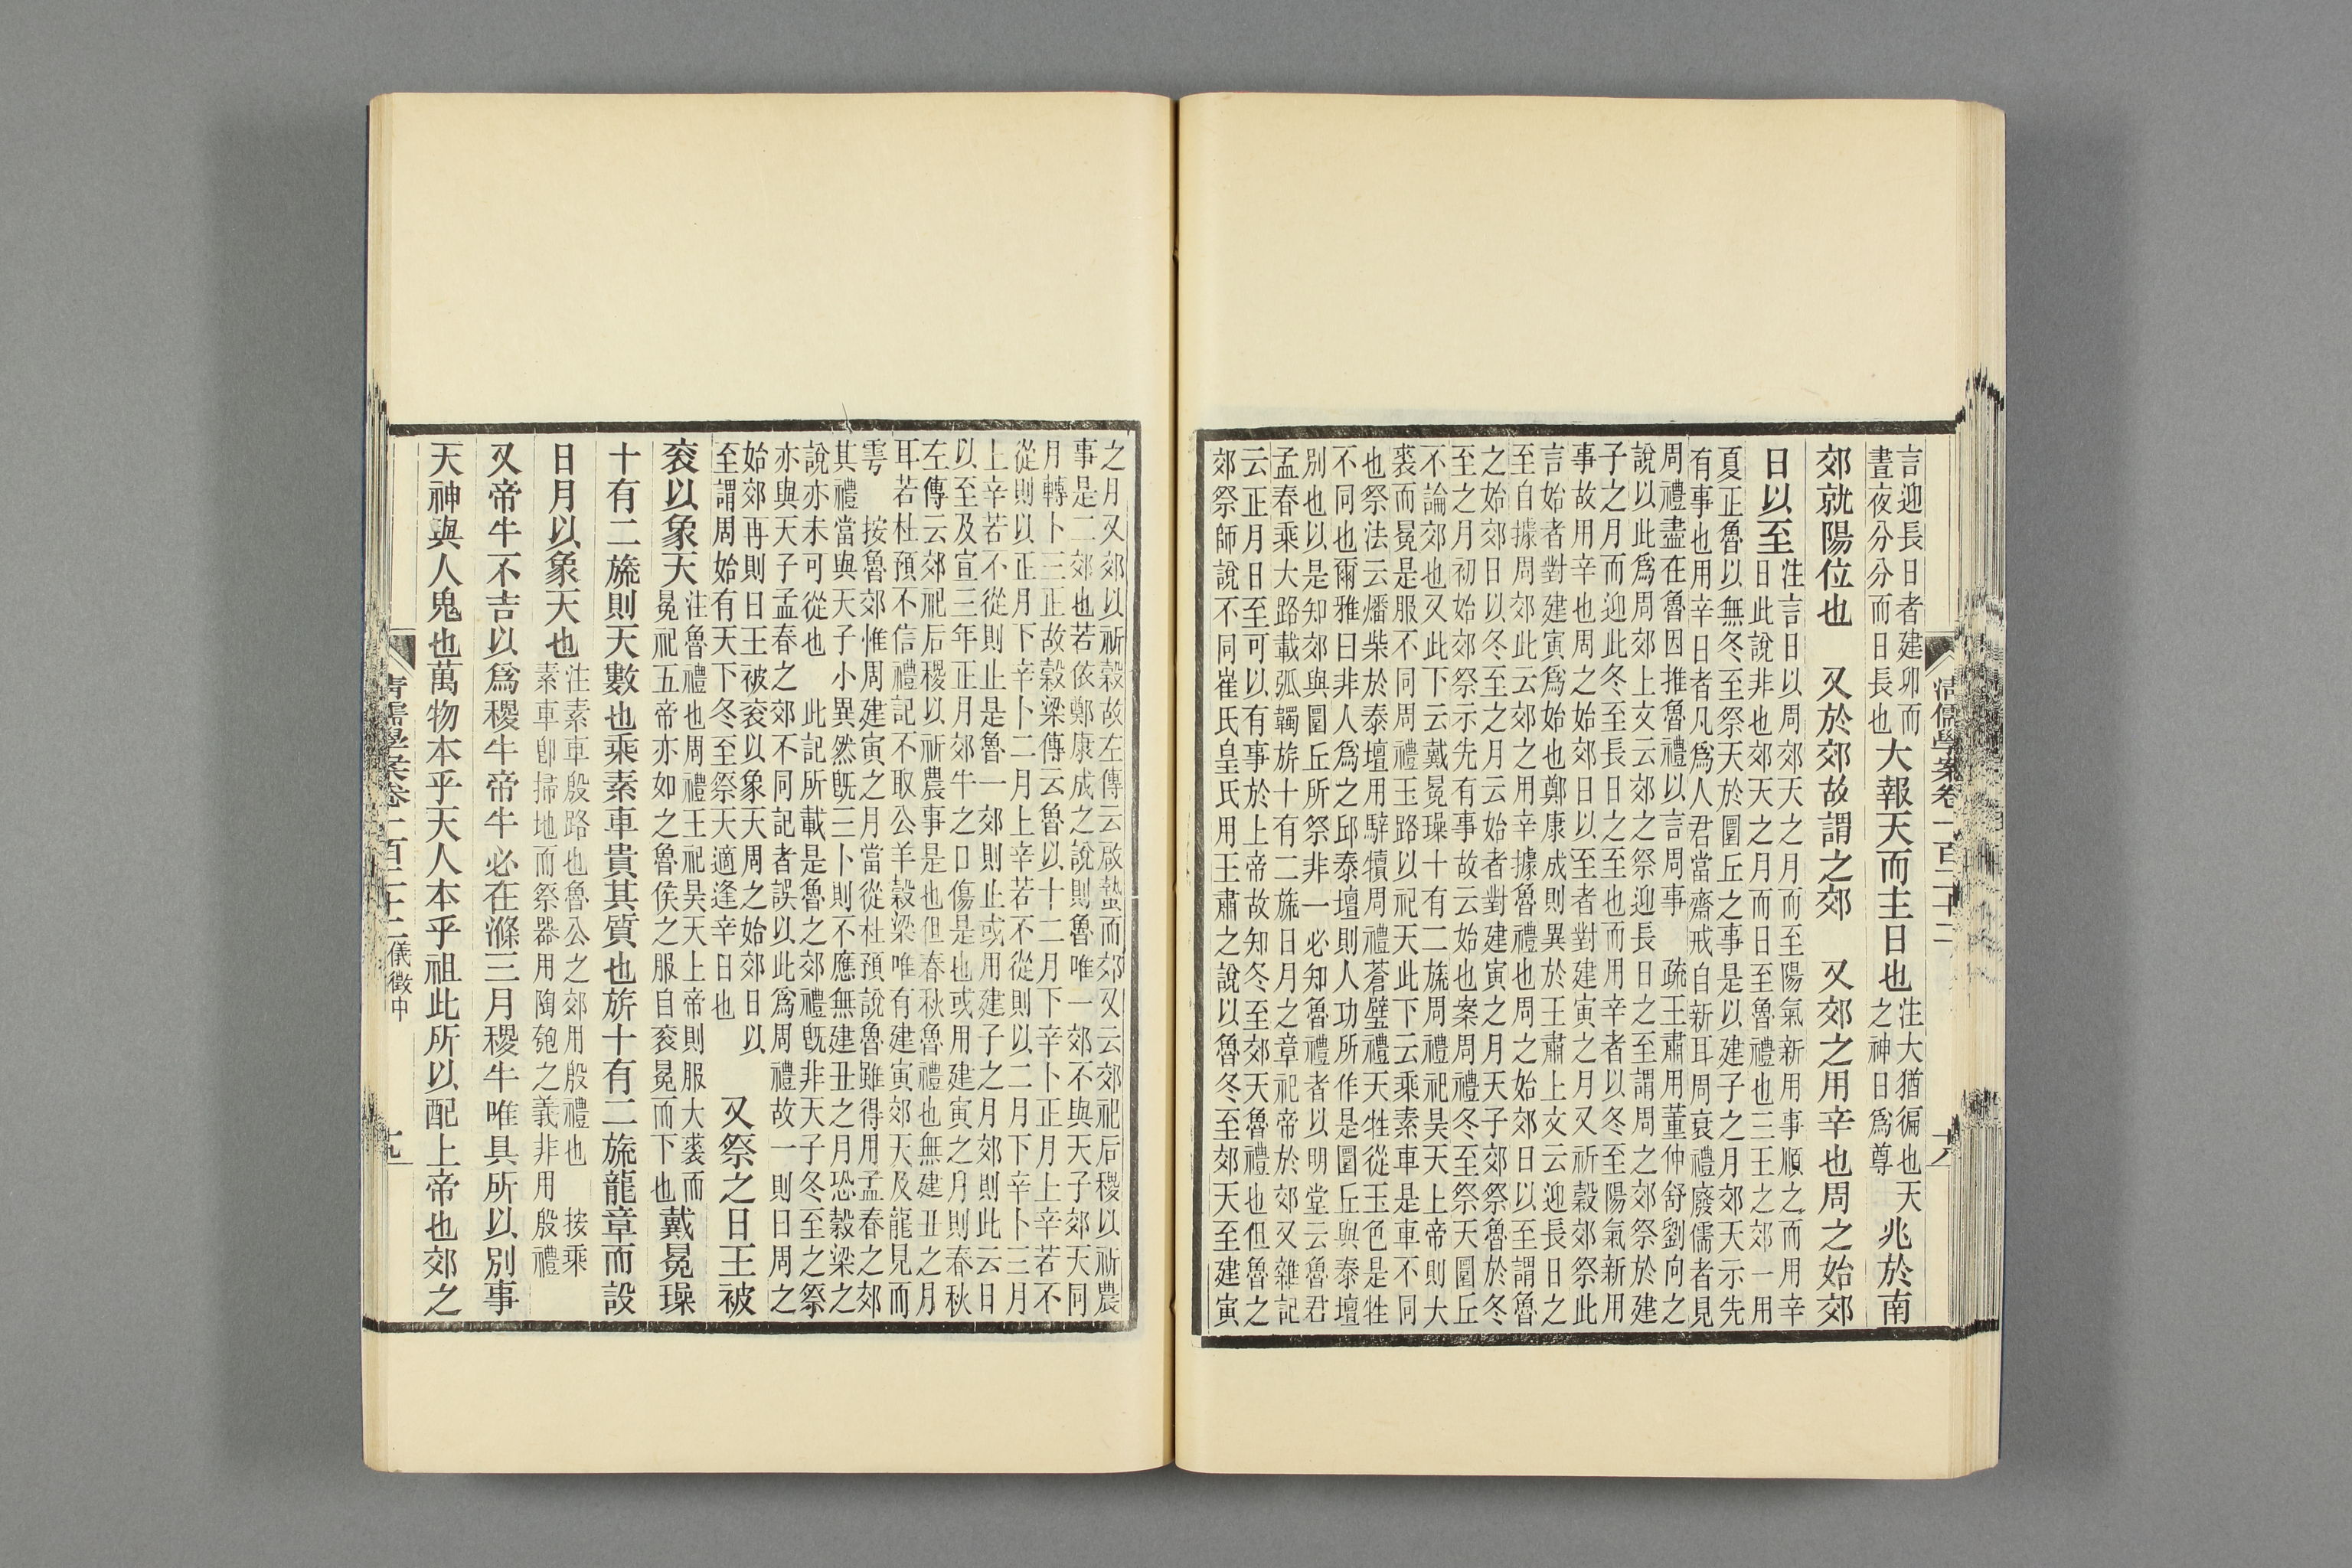 言迎長日者建卯而
晝夜分分而日長也
大報天而主日也
注大猶徧也天
之神日爲尊
兆於南
郊就陽位也　又於郊故謂之郊　又郊之用辛也周之始郊
日以至
注言日以周郊天之月而至陽氣新用事順之而用辛
日此說非也郊天之月而日至魯禮也三王之郊一用
夏正魯以無冬至祭天於圜丘之事是以建子之月郊天示先
有事也用辛日者凡爲人君當齋戒自新耳周衰禮廢儒者見
周禮盡在魯因推魯禮以言周事　疏王肅用董仲舒劉向之
說以此爲周郊上文云郊之祭迎長日之至謂周之郊祭於建
子之月而迎此冬至長日之至也而用辛者以冬至陽氣新用
事故用辛也周之始郊日以至者對建寅之月又祈穀郊祭此
言始者對建寅爲始也鄭康成則異於王肅上文云迎長日之
至自據周郊此云郊之用辛據魯禮也周之始郊日以至謂魯
之始郊日以冬至之月云始者對建寅之月天子郊祭魯於冬
至之月初始郊祭示先有事故云始也案周禮冬至祭天圜丘
不論郊也又此下云戴冕璪十有二旒周禮祀昊天上帝則大
裘而冕是服不同周禮玉路以祀天此下云乘素車是車不同
也祭法云燔柴於泰壇用騂犢周禮蒼璧禮天牲從玉色是牲
不同也爾雅曰非人爲之邱泰壇則人功所作是圜丘與泰壇
別也以是知郊與圜丘所祭非一必知魯禮者以明堂云魯君
孟春乘大路載弧韣旂十有二旒日月之章祀帝於郊又雜記
云正月日至可以有事於上帝故知冬至郊天魯禮也但魯之
郊祭師說不同崔氏皇氏用王肅之說以魯冬至郊天至建寅
清儒學案卷一百二十二
十八
之月又郊以祈穀故左傳云啟蟄而郊又云郊祀后稷以祈農
事是二郊也若依鄭康成之說則魯唯一郊不與天子郊天同
月轉卜三正故穀梁傳云魯以十二月下辛卜正月上辛若不
從則以正月下辛卜二月上辛若不從則以二月下辛卜三月
上辛若不從則止是魯一郊則止或用建子之月郊則此云日
以至及宣三年正月郊牛之口傷是也或用建寅之月則春秋
左傳云郊祀后稷以祈農事是也但春秋魯禮也無建丑之月
耳若杜預不信禮記不取公羊穀梁唯有建寅郊天及龍見而
雩　按魯郊惟周建寅之月當從杜預說魯雖得用孟春之郊
其禮當與天子小異然旣三卜則不應無建丑之月恐穀梁之
說亦未可從也　此記所載是魯之郊禮旣非天子冬至之祭
亦與天子孟春之郊不同記者誤以此爲周禮故一則曰周之
始郊再則曰王被袞以象天周之始郊日以
至謂周始有天下冬至祭天適逢辛日也
又祭之日王被
袞以象天
注魯禮也周禮王祀昊天上帝則服大裘而
冕祀五帝亦如之魯侯之服自袞冕而下也
戴冕璪
十有二旒則天數也乘素車貴其質也旂十有二旒龍章而設
日月以象天也
注素車殷路也魯公之郊用殷禮也　按乘
素車卽掃地而祭器用陶匏之義非用殷禮
又帝牛不吉以爲稷牛帝牛必在滌三月稷牛唯具所以別事
天神與人鬼也萬物本乎天人本乎祖此所以配上帝也郊之
清儒學案卷一百二十二儀徵中
十九